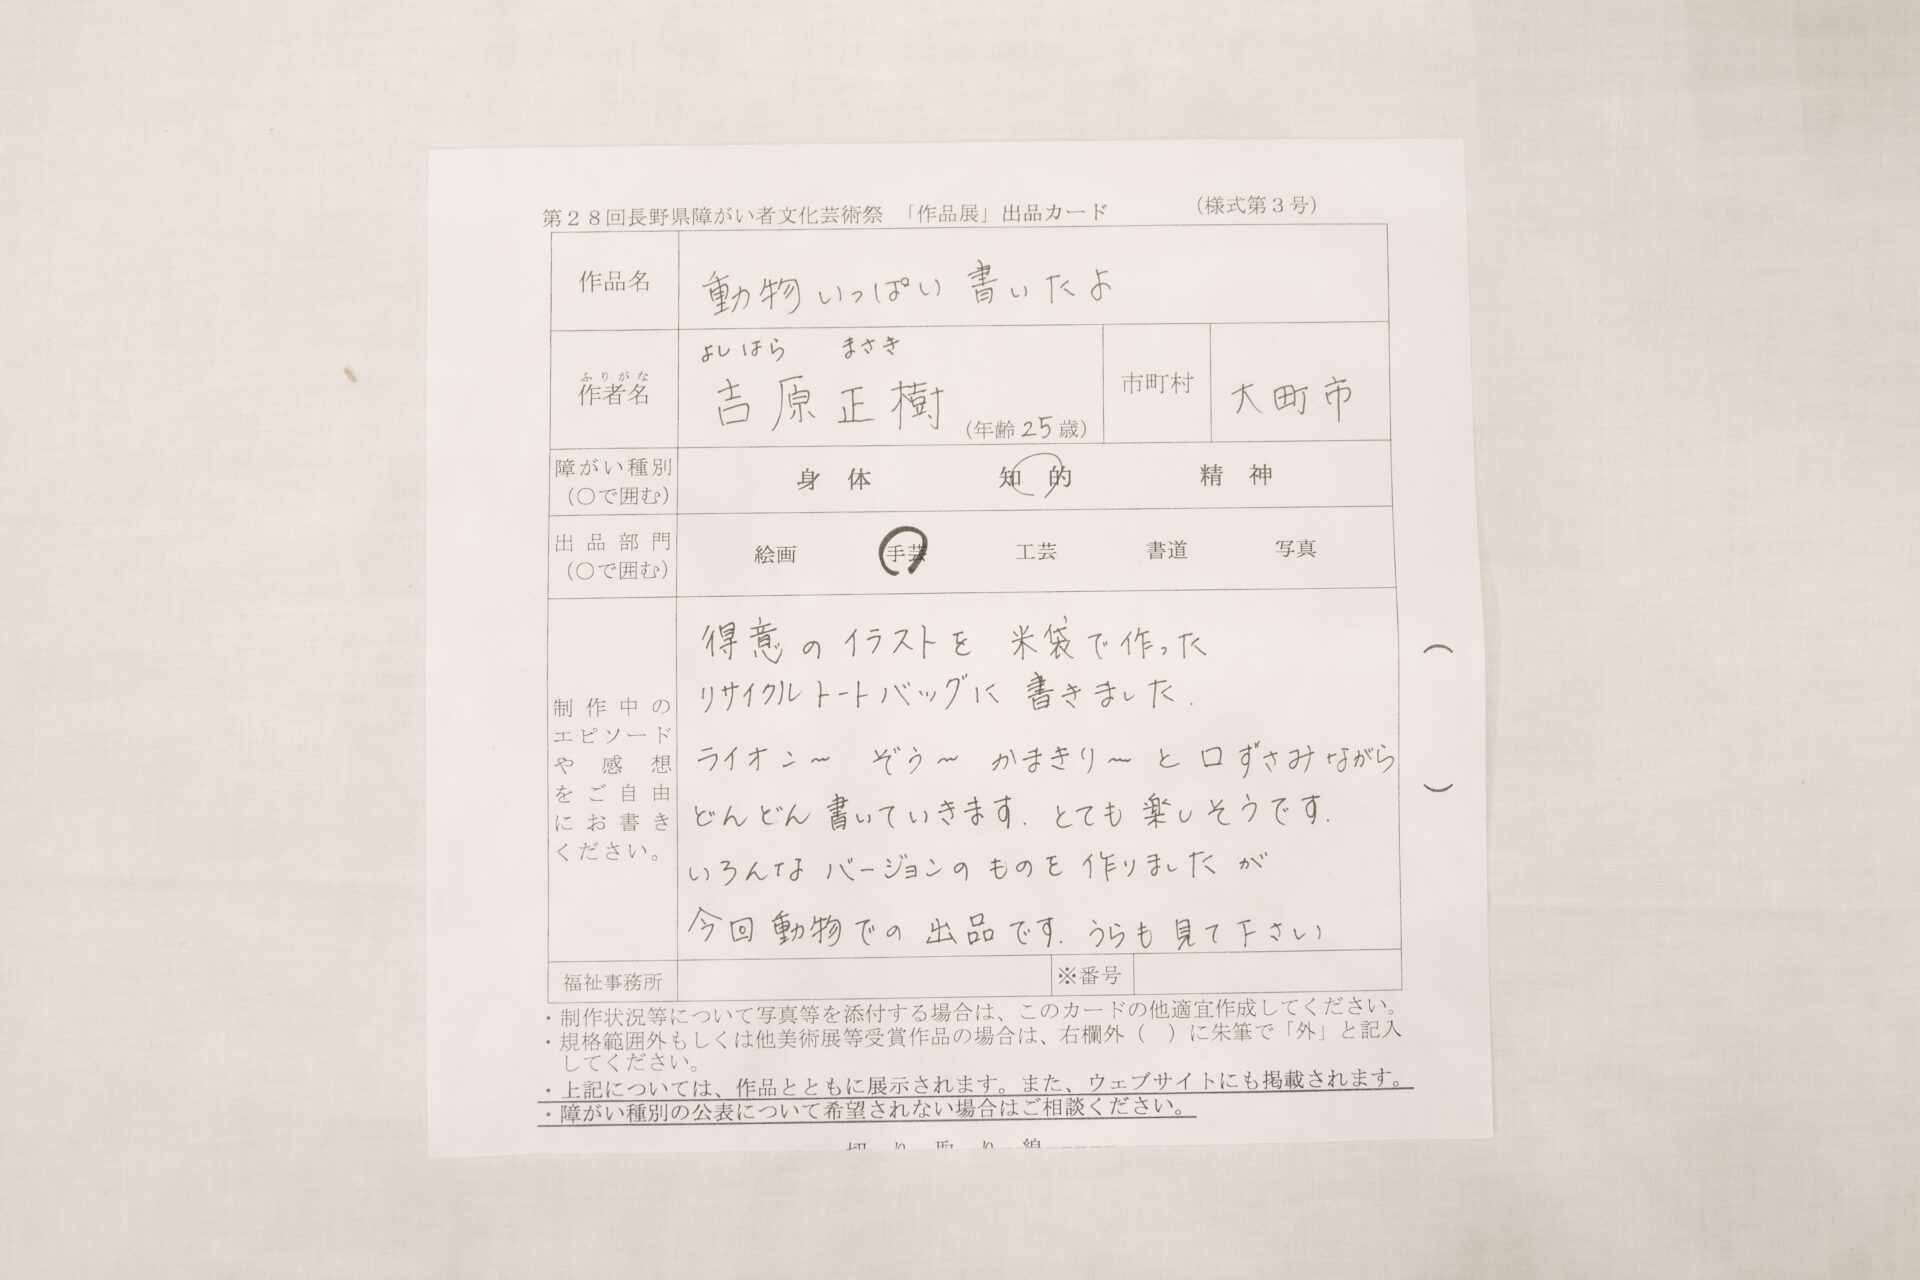 第28回長野県障がい者文化芸術祭 「作品展」出品カード (様式第3号)
作品名 動物いっぱい書いたよ
よしはら まさき
ふりがな
作者名 吉原正樹 (年齢25歳) 市町村 大町市
障がい種別 (○で囲む) 身体 知的 精神
出品部門 (○で囲む) 絵画 手芸 工芸 書道 写真
制作中のエピソードや感想をご自由にお書きください。
得意のイラストを 米袋で作った
リサイクルトートバッグに 書きました.
ライオン～ ぞう～ かまきり～ と口ずさみながら
どんどん書いていきます. とても楽しそうです.
いろんな バージョンのものを作りましたが
今回動物での 出品です. うらも見て下さい
( )
福祉事務所 ※番号
・制作状況等について写真等を添付する場合は、このカードの他適宜作成してください。
・規格範囲外もしくは他美術展等受賞作品の場合は、右欄外( )に朱筆で「外」と記入
してください。
・上記については、作品とともに展示されます。また、ウェブサイトにも掲載されます。
・障がい種別の公表について希望されない場合はご相談ください。
切り取り線-----